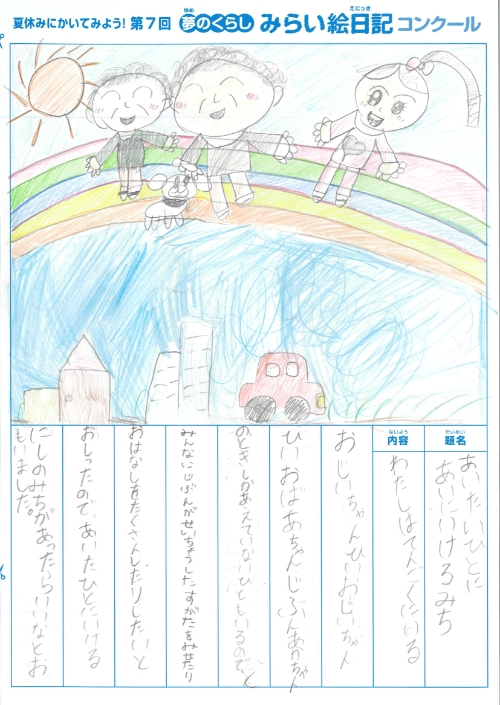 夏休みにかいてみよう! 第7回 夢のくらし みらい絵日記 コンクール
ゆめ
えにっき
だいめい
題名
あいたいひとに
あいにいけるみち
ないよう
内容
わたしはてんごくにいる
おじいちゃんひいおじいちゃん
ひいおばあちゃんじぶんあかちゃん
のときしかあえていないひともいるので、
みんなにじぶんがせいちょうしたすがたをみせたり
おはなしをたくさんしたりしたいと
おもったので、あいたひとにいける
にじのみちがあったらいいなとお
もいました。